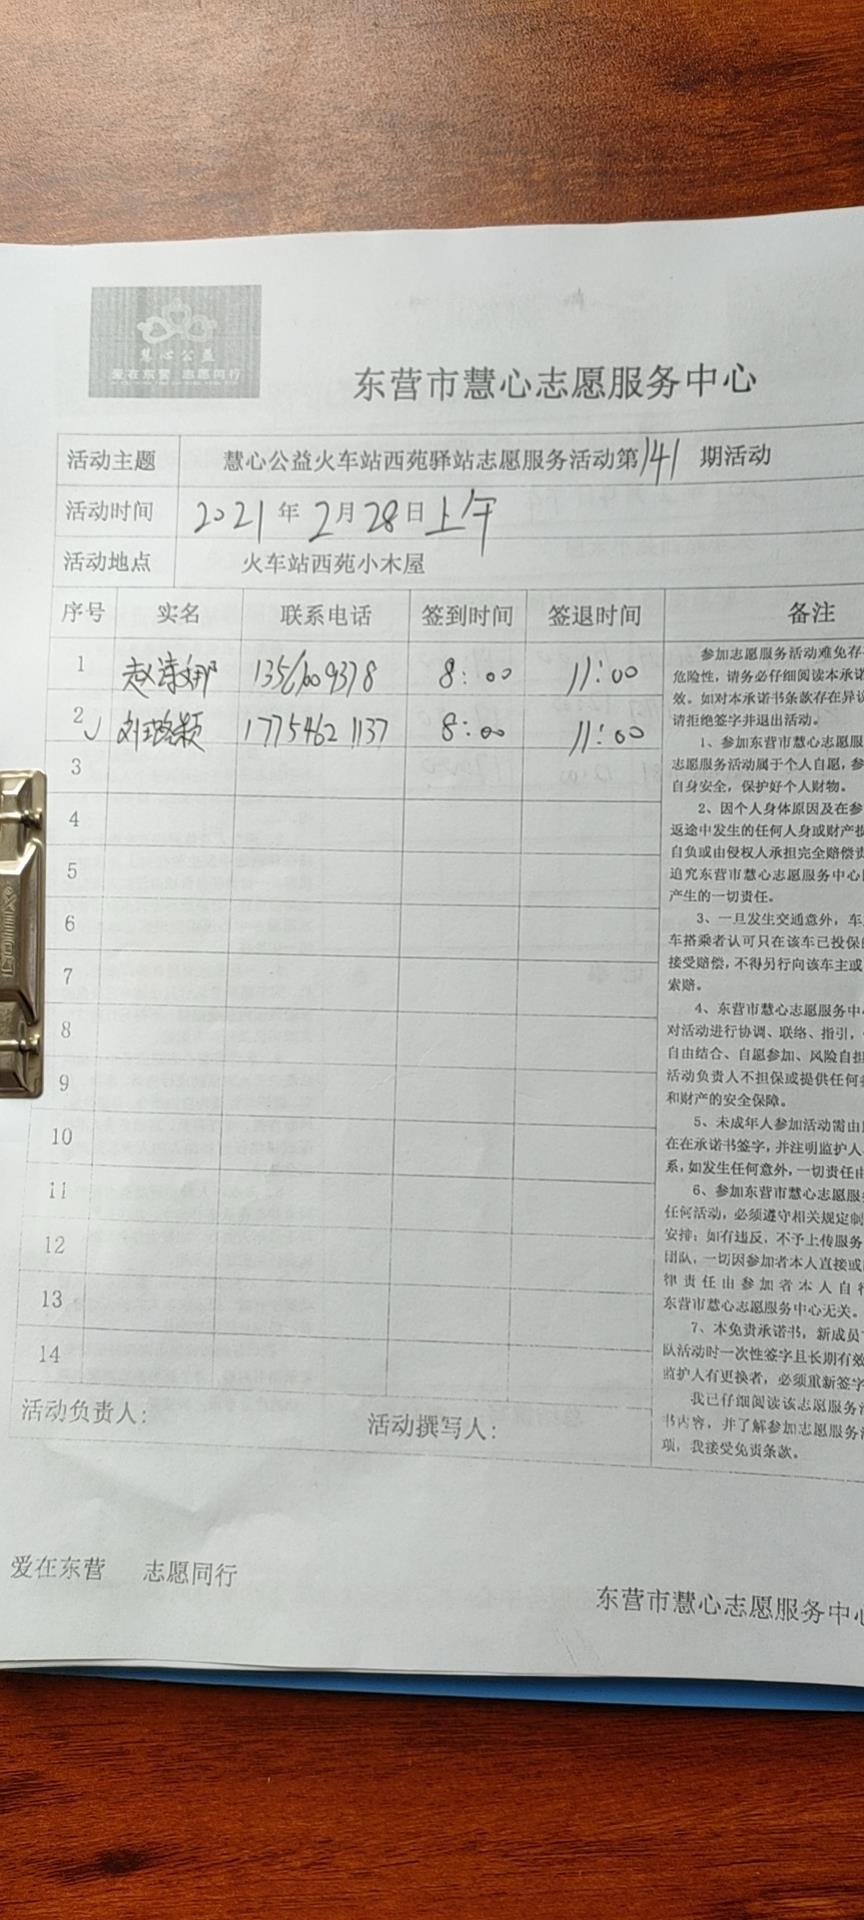 慧心公益
爱在东营 志愿同行
东营市慧心志愿服务中心
活动主题 慧心公益火车站西苑驿站志愿服务活动第141期活动
活动时间 2021年2月28日上午
活动地点 火车站西苑小木屋
序号 实名 联系电话 签到时间 签退时间 备注
1 赵 8:00 11:00
2 刘 颖 17754621137 8:00 11:00
3
4
5
6
7
8
9
10
11
12
13
14
参加志愿服务活动难免存
危险性，请务必仔细阅读本承诺
效。如对本承诺书条款存在异议
请拒绝签字并退出活动。
1、参加东营市慧心志愿服
志愿服务活动属于个人自愿，参
自身安全，保护好个人财物。
2、因个人身体原因及在参
返途中发生的任何人身或财产损
自负或由侵权人承担完全赔偿责
追究东营市慧心志愿服务中心
产生的一切责任。
3、一旦发生交通意外，车
车搭乘者认可只在该车已投保
接受赔偿，不得另行向该车主或
索赔。
4、东营市慧心志愿服务中
对活动进行协调、联络、指引，
自由结合、自愿参加、风险自担
活动负责人不担保或提供任何
和财产的安全保障。
5、未成年人参加活动需由
在在承诺书签字，并注明监护人
系，如发生任何意外，一切责任由
6、参加东营市慧心志愿服
任何活动，必须遵守相关规定制
安排；如有违反，不予上传服务
团队，一切因参加者本人直接或
律责任由参加者本人自行
东营市慧心志愿服务中心无关。
7、本免责承诺书，新成员
队活动时一次性签字且长期有效
监护人有更换者，必须重新签字
我已仔细阅读该志愿服务活
书内容，并了解参加志愿服务活
项，我接受免责条款。
活动负责人： 活动撰写人：
爱在东营 志愿同行
东营市慧心志愿服务中心